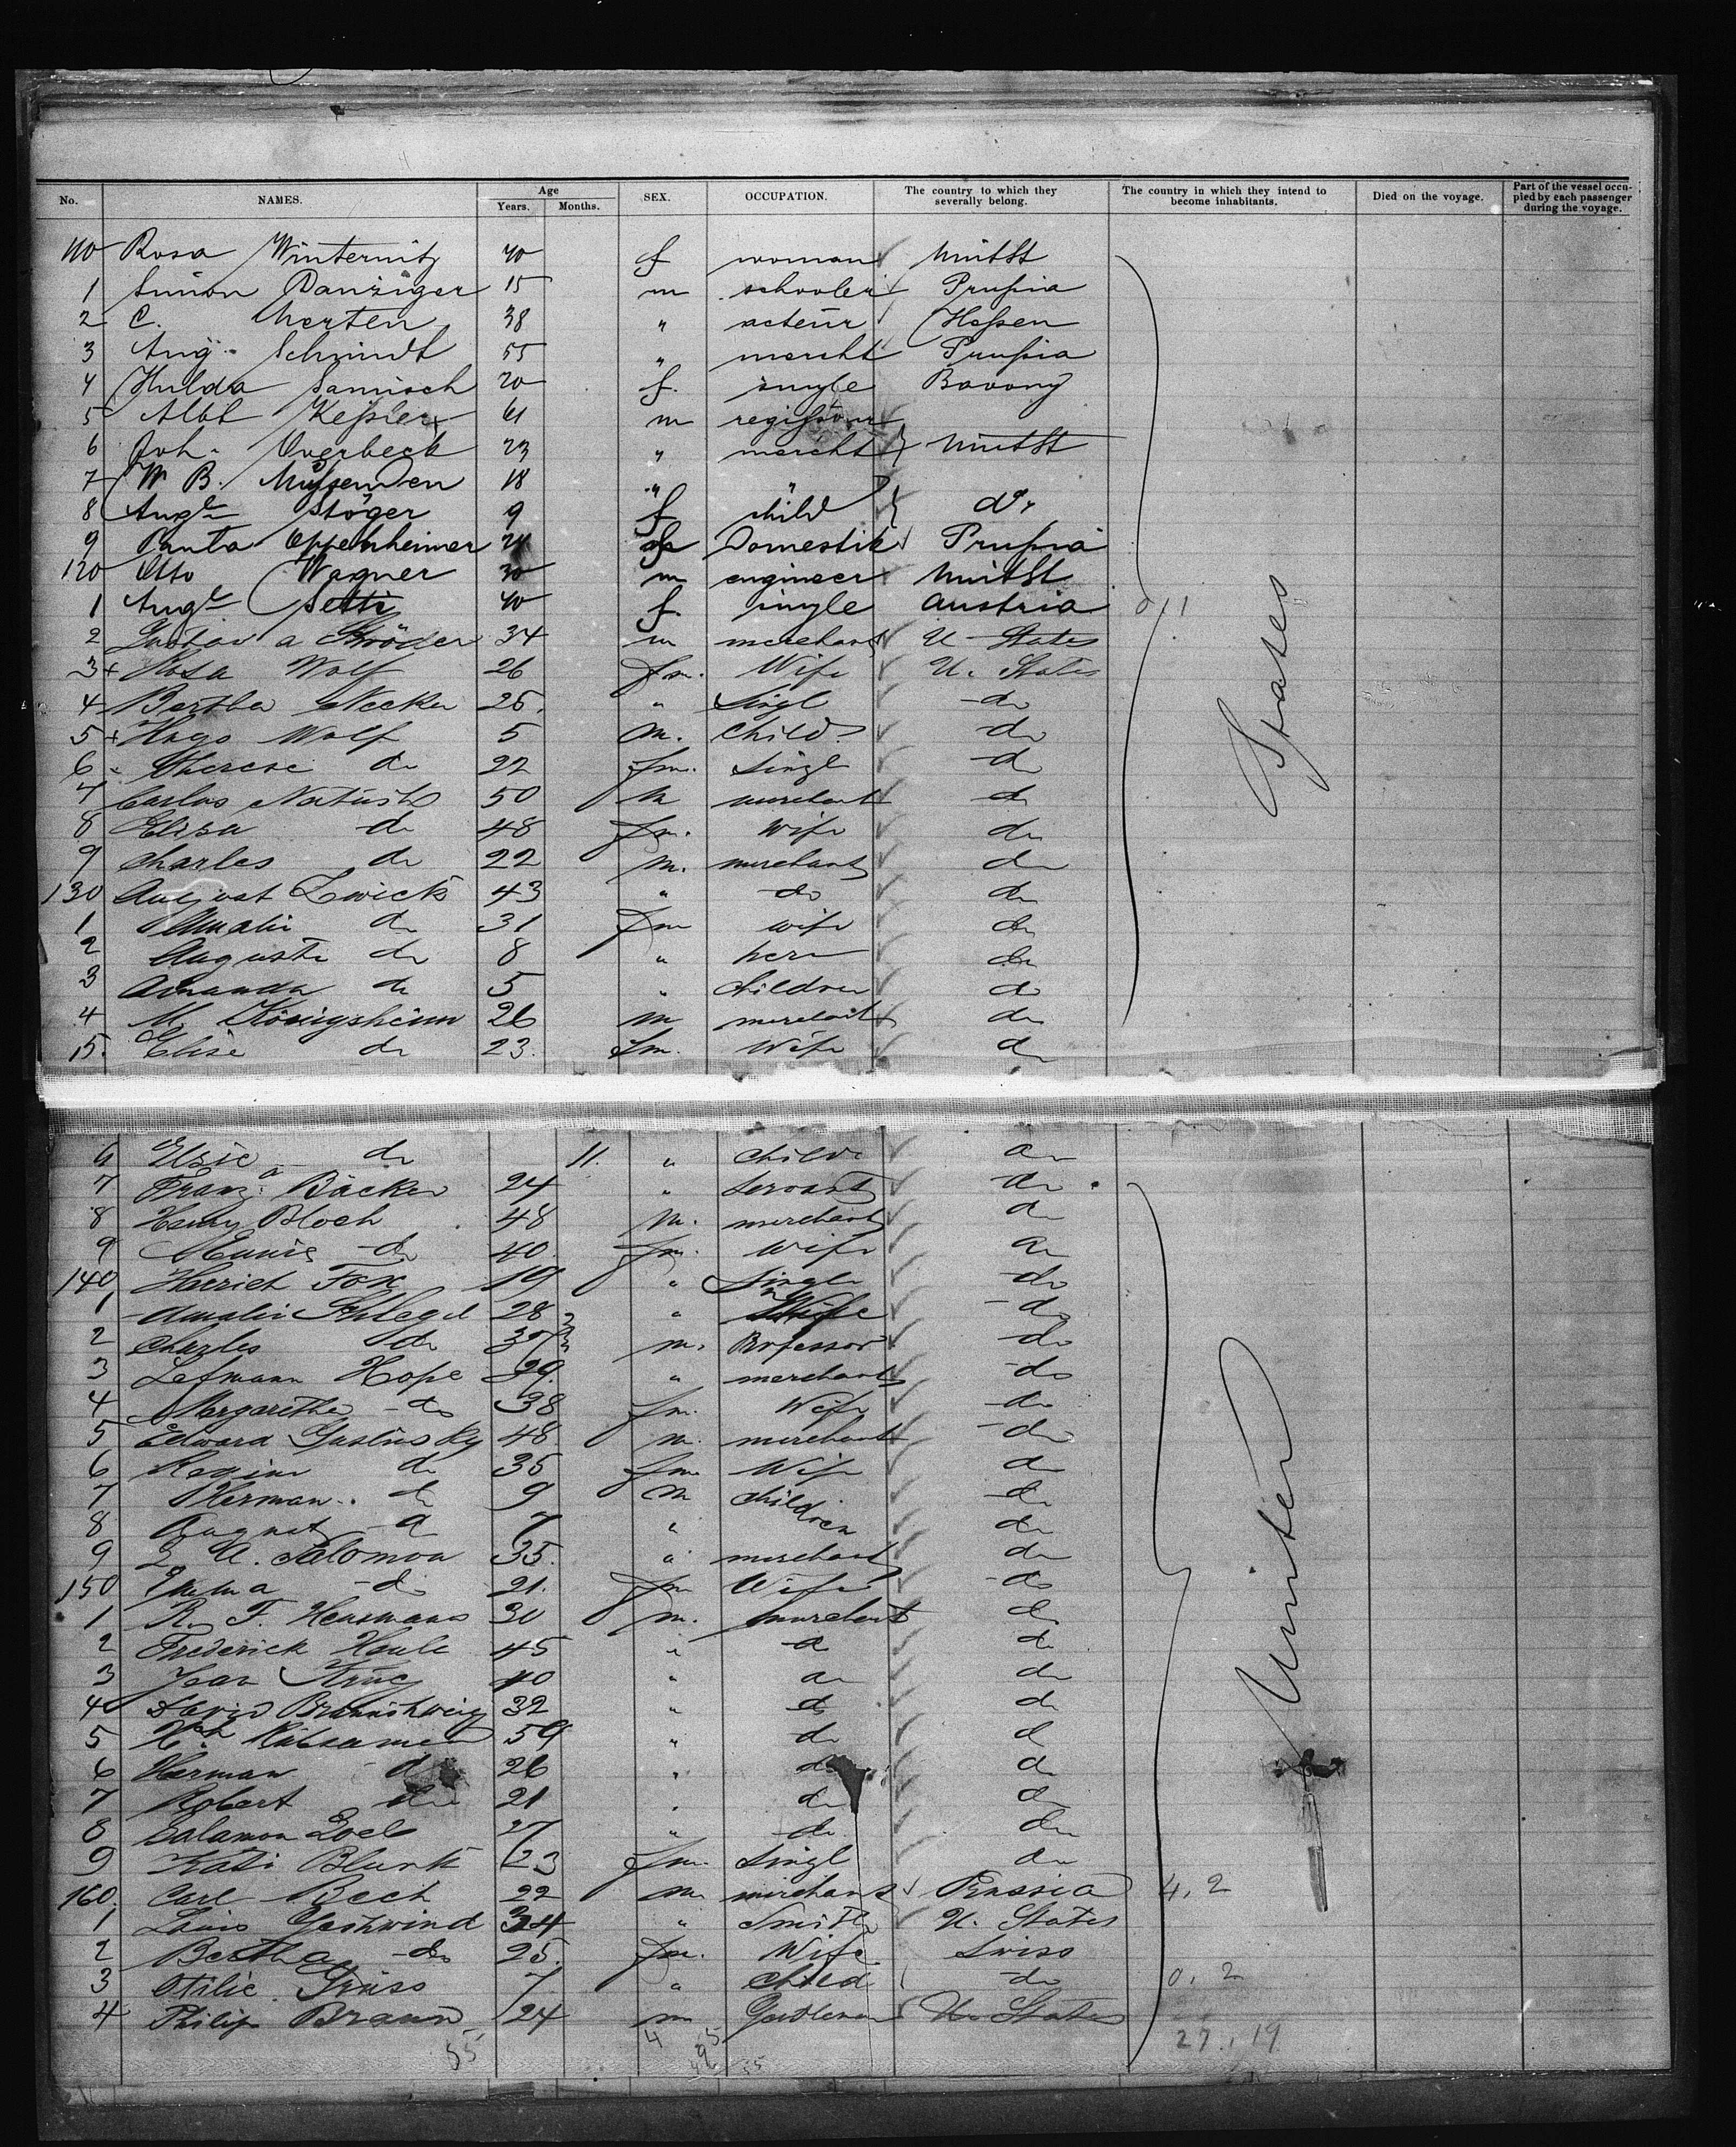 No. NAMES. Age Years. Months. SEX. OCCUPATION. The country to which they severally belong. The country in which they intend to become inhabitants. Died on the voyage. Part of the vessel occupied by each passenger during the voyage.
110 Rosa Winternitz 40 f woman UnitSt
1 Simon Danziger 15 m schooler Prussia
2 C. Merten 38 " acteur Hessen
3 Aug. Schmidt 55 " marcht Prussia
4 Hulda Samisch 20 f. single
5 Albt Kessler 61 m regisseur
6 Joh. Overbeck 23 " marcht UnitSt
7 W B. 18 " "
8 Augte Stöger 9 f child do.
9 Oppenheimer f Domestik Prussia
120 Otto Wagner 30 m engineer UnitSt
1 Augte 40 f. single Austria 0/1
2 Gustav a 34 m merchant U States
3 + Rosa Wolf 26 fm. Wife U. States
4 Bertha 25. " Singl do
5 + Hugo Wolf 5 m. Child do
6 Therese do 22 fm. Singl do
7 Carlos 50 m merchant do
8 Elisa do 48 fm. wife do
9 Charles do 22 m. merchant do
130 August Zwick 43 " do do
1 Amalie do 31 fm wife do
2 Auguste do 8 " do
3 Amanda do 5 " Children do
4 M. Königsheim 26 m merchant do
15. Elise do 23. fm. Wife do
6 Elsie do 11. " Child do
7 Franz. a Bäcker 24 " Servant do
8 Henry Bloch 48 m. merchant do
9 do 40. fm. Wife do
140 Harriet Fox 19 " Single do
1 Amalie Schlegel 28 " Wife do
2 Charles do 37 m. Professor do
3 Lefmann Hope 39. " merchant do
4 Margarethe do 38 fm. Wife do
5 Edward 48 m. merchant do
6 Regine do 35 fm Wife do
7 Herman. do 9 m Children do
8 August do 7 " do
9 A. Salomon 35. " merchant do
150 Emma do 21. fm Wife do
1 R. F. 30 m. merchant do
2 Frederick 45 " do do
3 Jean Krug 40 " do do
4 David Braunschweig 32 " do do
5 59 " do do
6 Herman do 26 " do do
7 Robert do 21 " do do
8 Salamon 27 " do do
9 Kati 23 fm. Singl do
160. Carl Bech 22 m merchant Prussia 4. 2
1 Louis Geshwind 34 " Smith U. States
2 Bertha do 25. fm. Wife Swiss
3 Otilie. 7 " Child do 0. 2
4 Philip Braun 24 m Gentleman U. States
27. 19
55
4
United States